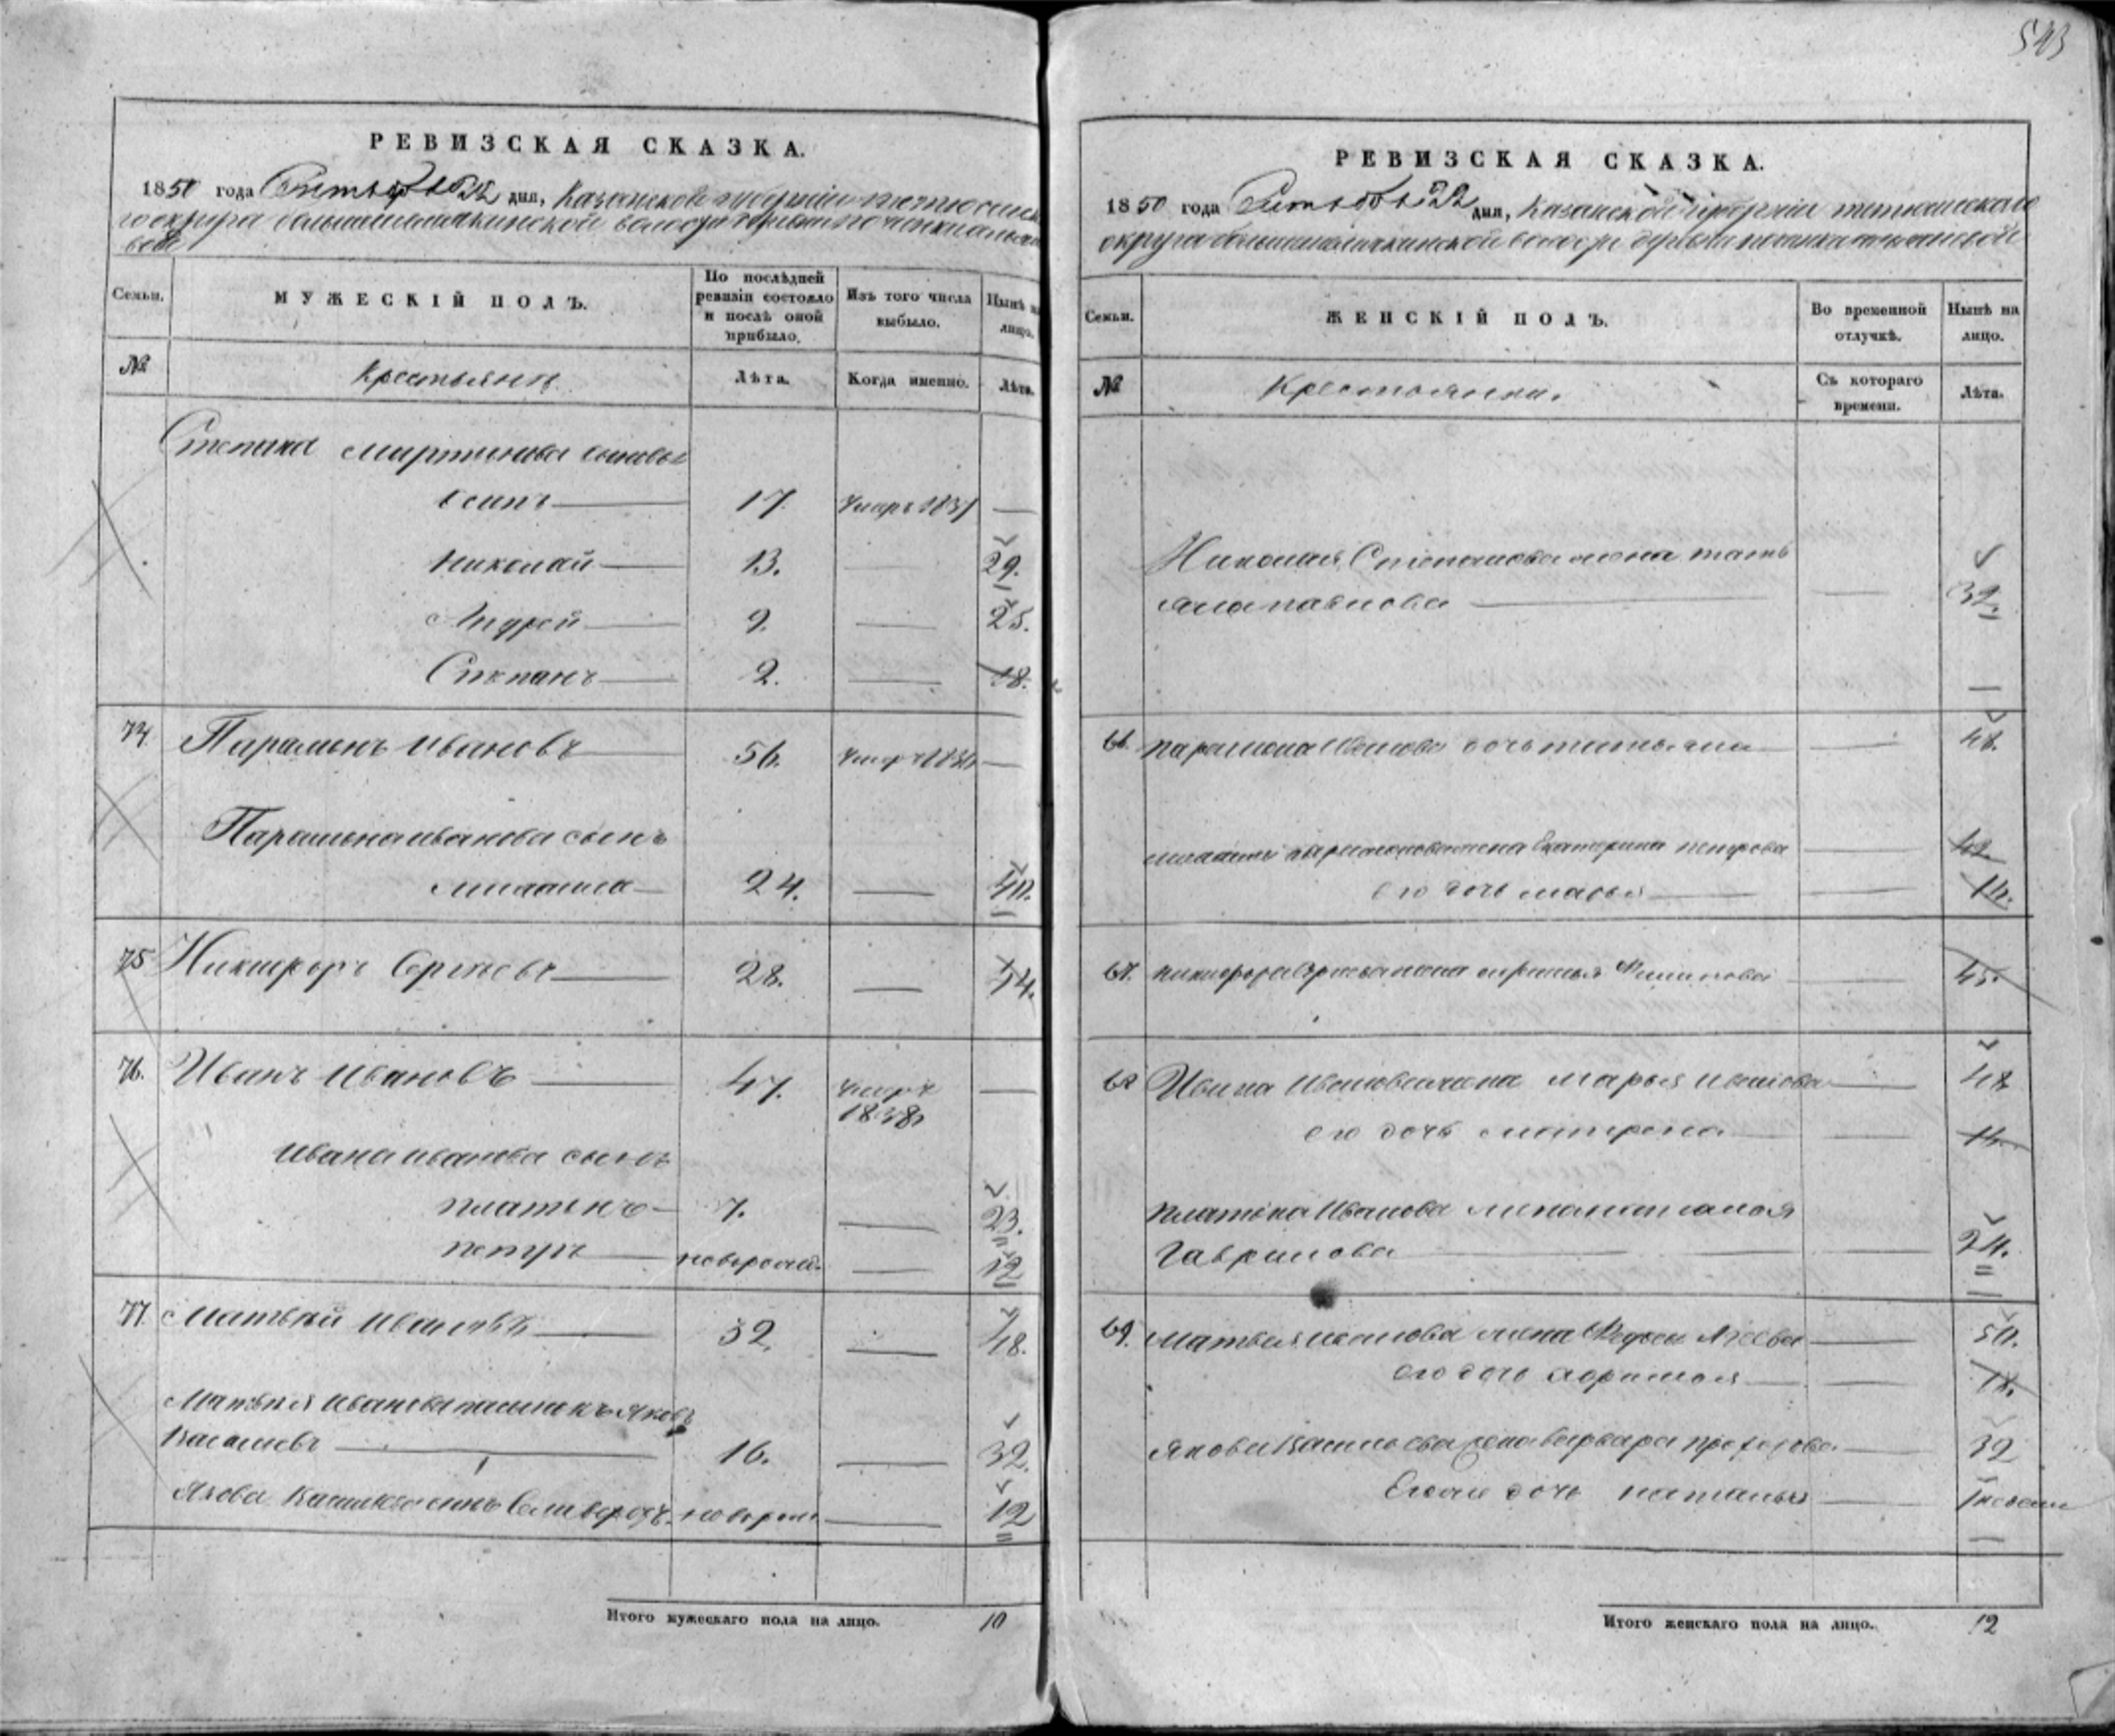 РЕВИЗСКАЯ СКАЗКА.
1850 года Сентября 22 дня, Казанской губернии тетюшска
го округа большешемякинской волости
Семьи.
МУЖЕСКІЙ ПОЛЪ.
По послѣдней ревизіи состояло и послѣ оной прибыло.
Изъ того числа выбыло.
Нынѣ на лицо.
№
Крестьянъ
Лѣта.
Когда именно.
Лѣта.
Степана Мартынова сыновья
Осипъ 17. умеръ 1837
Николай 13. 29.
Андрей 9. 25.
Степанъ 2. 18.
74. Парамонъ Ивановъ 56. умеръ
Парамона Иванова сынъ
24. 40.
75 Никифоръ Сергѣевъ 28. 44.
76. Иванъ Ивановъ 47. умеръ
1838
Ивана Иванова сынъ
Платонъ 7. 23.
Петръ новорож. 12
77. Матвѣй Ивановъ 32. 48.
Матвѣя Иванова пасынокъ Яковъ
Васильевъ 16. 32.
Якова Васильева сынъ Селиверстъ новорож 12
Итого мужескаго пола на лицо. 10
543
РЕВИЗСКАЯ СКАЗКА.
1850 года Сентября 22 дня, Казанской губерніи тетюшскаго
округа большешемякинской волости деревни
Семьи.
ЖЕНСКІЙ ПОЛЪ.
Во временной отлучкѣ.
Нынѣ на лицо.
№
Крестьянки.
Съ котораго времени.
Лѣта.
Николая Степанова жена Тать
яна Павлова 32.
66. Парамона Иванова дочь Татьяна 48.
жена Екатерина Петрова 42
его дочь Марья 14.
67. Никифора Сергѣева жена Филипова 45.
68 Ивана Иванова жена Марья Иванова 48
его дочь Матрена
Платона Иванова жена
Гаврилова 24.
69. Матвѣя Иванова жена 50.
его дочь
Якова Васильева жена Варвара Прохорова 32
Егоже дочь Наталья
Итого женскаго пола на лицо. 12